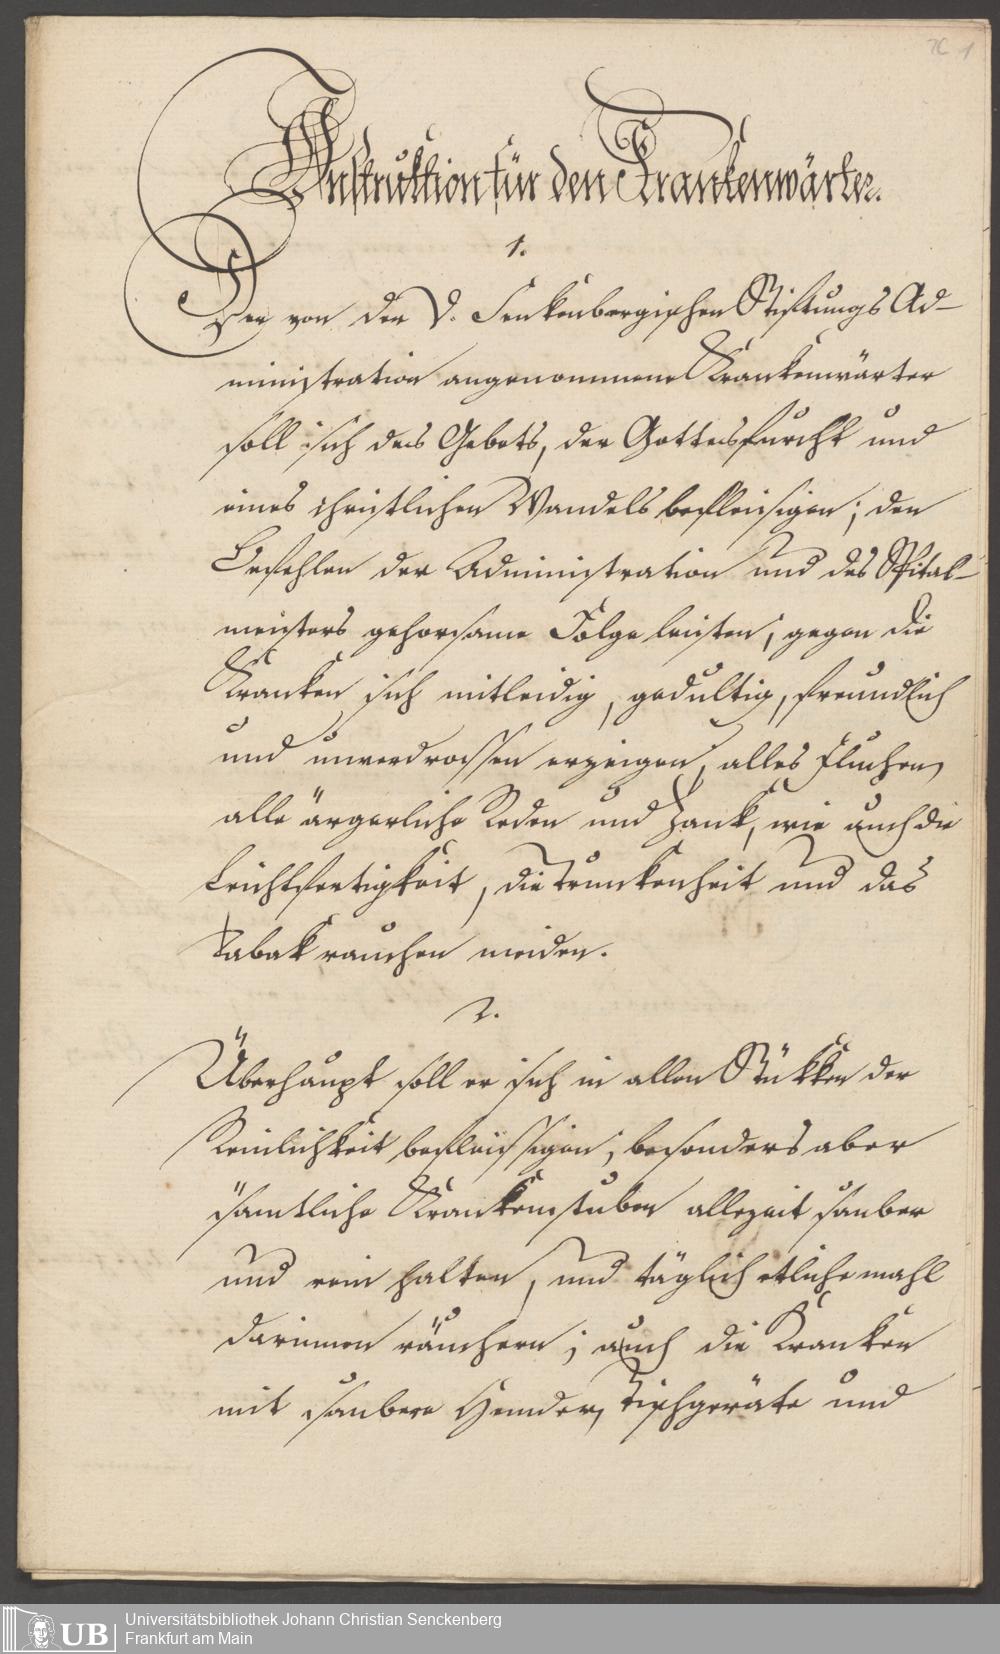 Instruktion für den Krankenwärter.
1.
Der von der D. Senkenbergischen Stiftungs Ad-
ministration angenommene Krankenwärter
soll sich des Gebets, der Gottesfurcht und
eines christlichen Wandels befleisigen; den
Befehlen der Administration und des Spital-
meisters gehorsame Folge leisten, gegen die
Kranken sich mitleidig, gedultig, freundlich
und unverdrossen erzeigen, alles Fluchen,
alle ärgerliche Reden und Zank, wie auch die
Leichtfertigkeit, die Trunckenheit und das
Tabak rauchen meiden.
2.
Überhaupt soll er sich in allen Stükken der
Reinlichkeit befleissigen, besonders aber
sämtliche Krankenstuben allezeit sauber
und rein halten, und täglich etliche mahl
darinnen räuchern; auch die Kranken
mit saubere Hemder, Tischgeräte und
1
UB
Universitätsbibliothek Johann Christian Senckenberg
Frankfurt am Main